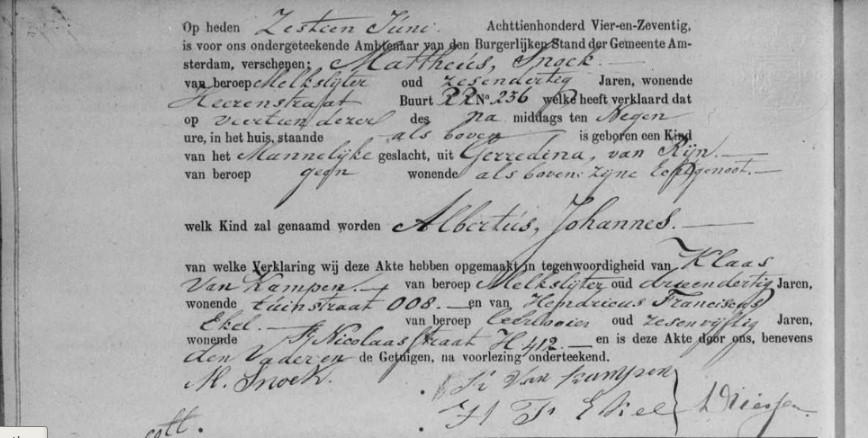 Op heden Zestien Júni Achttienhonderd Vier-en-Zeventig,
is voor ons ondergeteekende Ambtenaar van den Burgerlijken Stand der Gemeente Am-
sterdam, verschenen: Mattheús, Snoek
van beroep Melkslijter oud zesendertig Jaren, wonende
Heerenstraat Buurt RR No. 236 welke heeft verklaard dat
op veertien dezer des na middags ten Negen
ure, in het huis, staande als boven is geboren een Kind
van het Mannelijke geslacht, uit Gerredina, van Rijn.
van beroep geen wonende als boven: zijne Echtgenoot.
welk Kind zal genaamd worden Albertús, Johannes.
van welke Verklaring wij deze Akte hebben opgemaakt in tegenwoordigheid van Klaas
Van Kampen. van beroep Melkslijter oud drieendertig Jaren,
wonende túinstraat 008. en van Hendricus Franciscus
Ekel. van beroep leerlooier oud zesenvijftig Jaren,
wonende St Nicolaasstraat H 412. en is deze Akte door ons, benevens
den Vader en de Getuigen, na voorlezing onderteekend.
M. Snoek. Van Kampen
H Fr Ekel